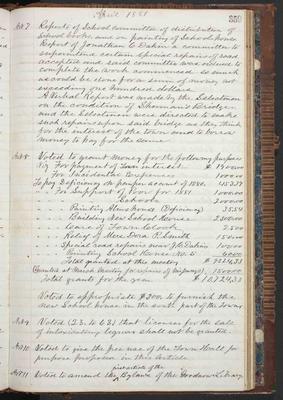 April 1881
350
Art 7. Reports of School committee of distribution of
School books, and on painting of School house
Report of Jonathan C Dakin a committee to
superintend certain special repairs of road
accepted and said committee was
complete the work commenced so much
as could be done for a sum of money not
exceeding one hundred dollars
A Verbal Report was made by the Selectmen
on the condition of Sherman's Bridge
and the Selectmen were directed to make
such repairs upon said bridge as they think
for the interest of the town and to borrow
money to pay for the same
Art 8. Voted to grant money for the following purposes
Viz For payment of Town interest
For Incidental Expenses
To pay Deficiency on pauper account of 1880
For Support of Poor for 1881
Schools
Painting Almshouse (Deficiency)
Building New School House
Care of Town Clock
Relief of Mrs R. Smith
Special road repairs near J C Dakin
Painting School House No. 5
Total granted at this meeting
(Granted at March Meeting for repairs of highways)
Total grants for the year
Voted to appropriate $200. to furnish the
New School house in the south part of the Town
Art 9. Voted (23. to 8) that licenses for the sale
of intoxicating liquors shall not be granted.
Art 10 Voted to give the free use of the Town Hall for
purpose proposed in this article
Art 11 Voted to amend the Bylaws of the Goodnow Library